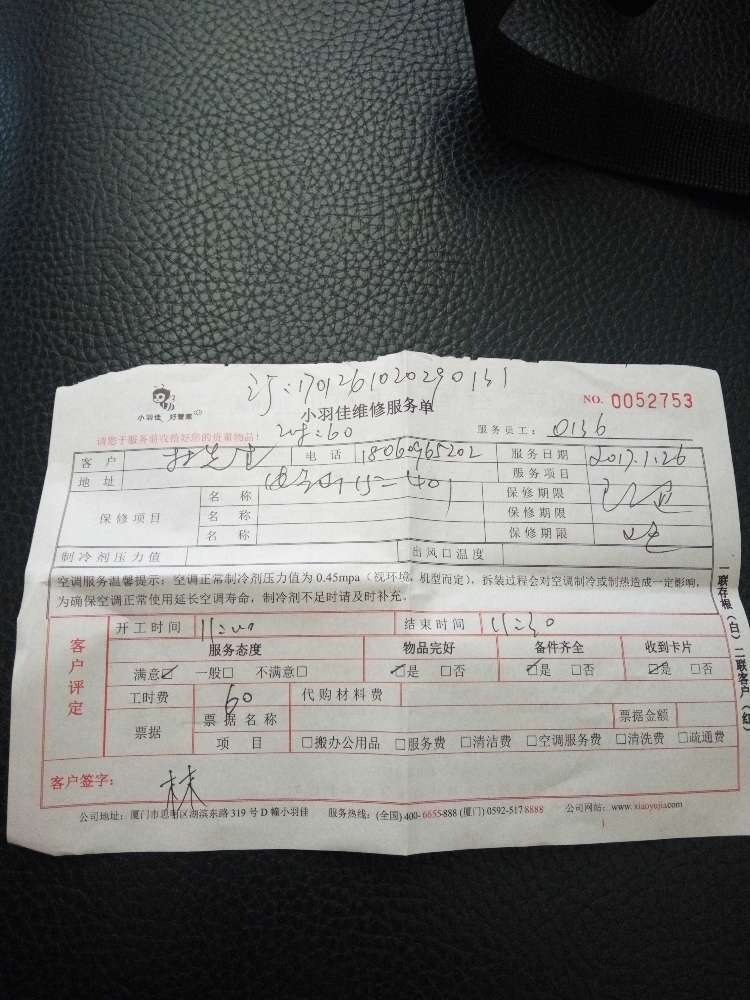 订:1701261020290131
小羽佳 好管家
小羽佳维修服务单
NO. 0052753
请您于服务前收拾好您的贵重物品!
:60
服务员工: 0136
客户 林先生 电话 18060965202 服务日期 2017.1.26
地址 服务项目
保修项目 名称 保修期限
名称 保修期限
名称 保修期限
制冷剂压力值 出风口温度
空调服务温馨提示:空调正常制冷剂压力值为0.45mpa(视环境,机型而定),拆装过程会对空调制冷或制热造成一定影响,
为确保空调正常使用延长空调寿命,制冷剂不足时请及时补充。
客户评定
开工时间 11:00 结束时间 11:30
服务态度 物品完好 备件齐全 收到卡片
满意☑ 一般□ 不满意□ ☑是 □否 ☑是 □否 ☑是 □否
工时费 60 代购材料费
票据 票据名称 票据金额
项目 □搬办公用品 □服务费 □清洁费 □空调服务费 □清洗费 □疏通费
客户签字: 林
公司地址:厦门市思明区湖滨东路319号D幢小羽佳 服务热线:(全国)400-6655-888 (厦门)0592-517 8888 公司网站:www.xiaoyujia.com
一联存根(白) 二联客户(红)